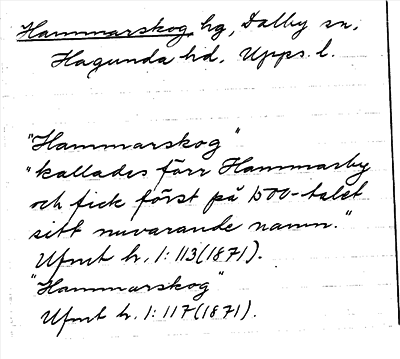 Hammarskog, hg, Dalby sn,
Hagunda hd. Upps. l.
"Hammarskog"
"kallades förr Hammarby
och fick först på 1500-talet
sitt nuvarande namn."
Ufmt h. 1:113(1871).
"Hammarskog"
Ufmt h. 1:117(1871).